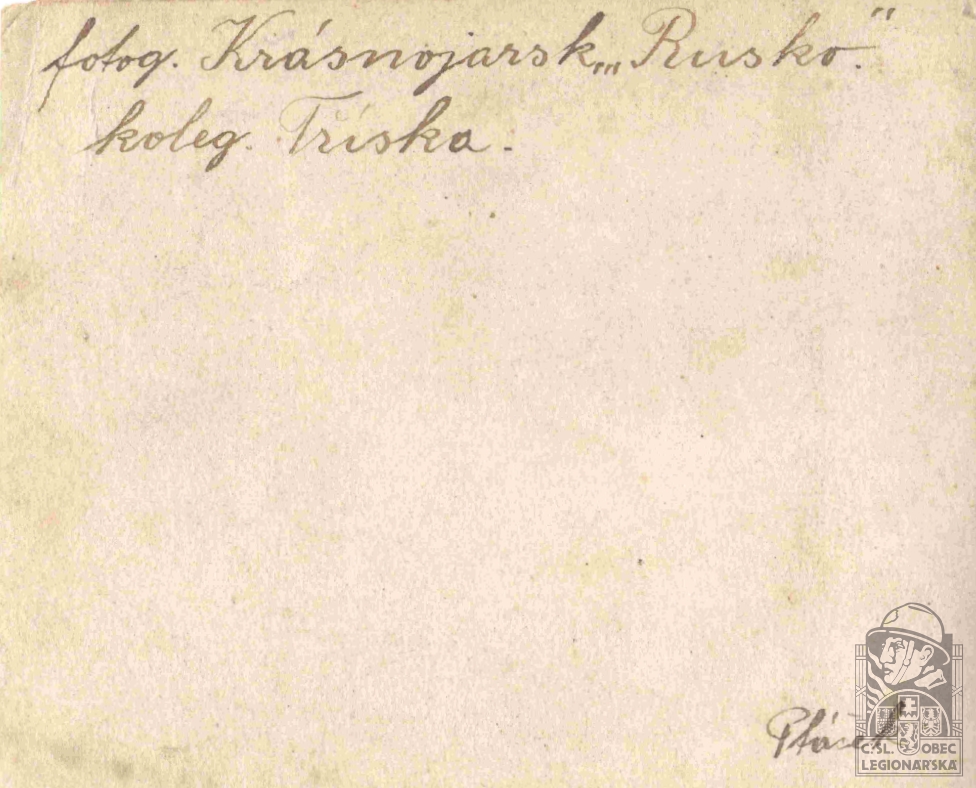 fotog. Krásnojarsk „Rusko."
koleg. Tříska.
Ptáček
Č.SL. OBEC
LEGIONÁŘSKÁ